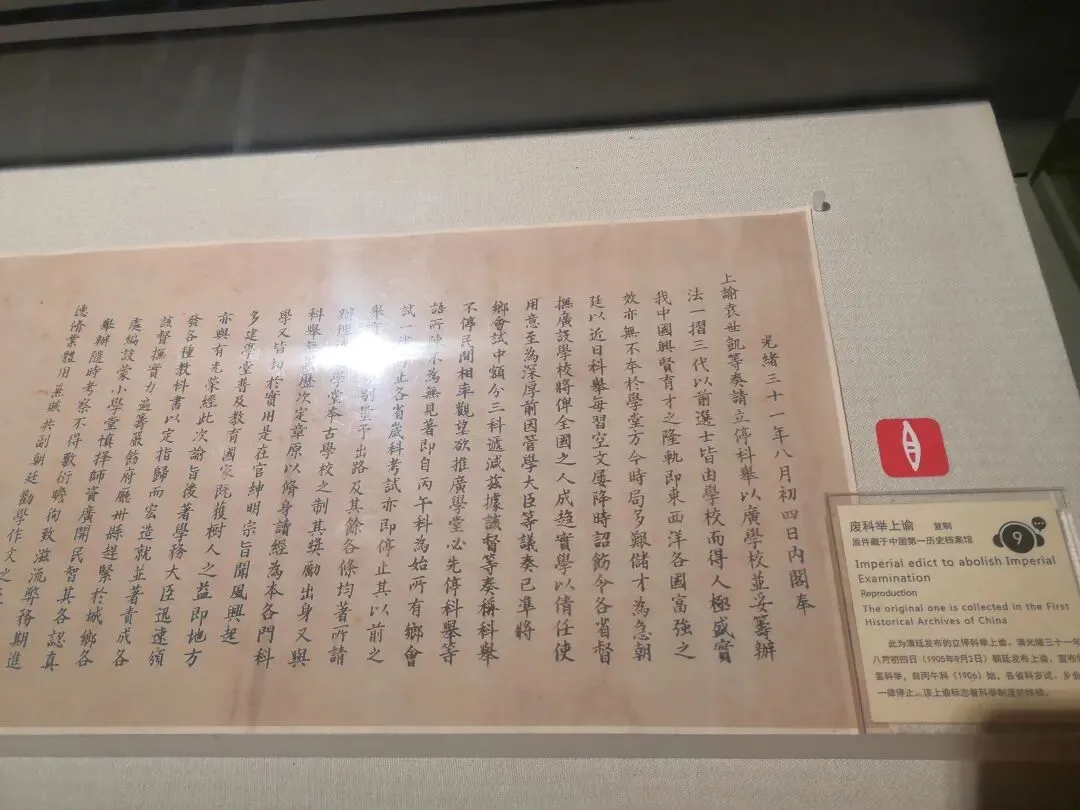 光緒三十一年八月初四日內閣奉
上諭袁世凱等奏請立停科舉以廣學校並妥籌辦
法一摺三代以前選士皆由學校而得人極盛實
我中國興賢育才之隆軌即東西洋各國富強之
效亦無不本於學堂方今時局多艱儲才為急朝
廷以近日科舉每習空文屢降時詔飭令各省督
撫廣設學校將俾全國之人成趨實學以備任使
用意至為深厚前因管學大臣等議奏已準將
鄉會試中額分三科遞減茲據該督等奏稱科舉
不停民間相率觀望欲推廣學堂必先停科舉等
語所陳不為無見著即自丙午科為始所有鄉會
試一律停止各省歲科考試亦即停止其以前之
舉 別量予出路及其餘各條均著所請
辦理 學堂本古學校之制其獎勵出身又與
科舉無 歷次定章原以脩身讀經為本各門科
學又皆切於實用是在官紳申明宗旨聞風興起
多建學堂普及教育國家既獲樹人之益即地方
亦與有光榮經此次諭旨後著學務大臣迅速頒
發各種教科書以定指歸而宏造就並著責成各
該督撫實力 籌嚴飭府廳州縣趕緊於城鄉各
處編設蒙小學堂慎擇師資廣開民智其各認真
舉辦隨時考察不得敷衍瞻徇致滋流弊務期進
德脩業體用無 共副朝廷勸學作文之
废科举上谕 复制
原件藏于中国第一历史档案馆
9
Imperial edict to abolish Imperial
Examination
Reproduction
The original one is collected in the First
Historical Archives of China
此为清廷发布的立停科举上谕。清光绪三十一年
八月初四日（1905年9月2日）朝廷发布上谕，宣布
罢科举，自丙午科（1906）始，各省科岁试、乡会
一律停止。该上谕标志着科举制度的终结。